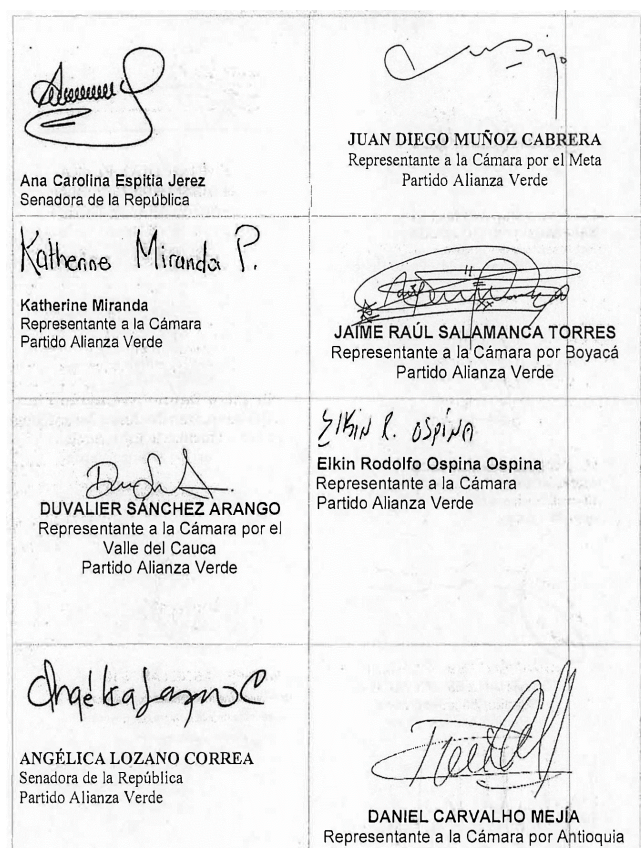 Ana Carolina Espitia Jerez
Senadora de la República
JUAN DIEGO MUÑOZ CABRERA
Representante a la Cámara por el Meta
Partido Alianza Verde
Katherine Miranda P.
Katherine Miranda
Representante a la Cámara
Partido Alianza Verde
JAIME RAÚL SALAMANCA TORRES
Representante a la Cámara por Boyacá
Partido Alianza Verde
DUVALIER SÁNCHEZ ARANGO
Representante a la Cámara por el
Valle del Cauca
Partido Alianza Verde
Elkin R. OSPINA
Elkin Rodolfo Ospina Ospina
Representante a la Cámara
Partido Alianza Verde
Angélica Lozano C
ANGÉLICA LOZANO CORREA
Senadora de la República
Partido Alianza Verde
DANIEL CARVALHO MEJÍA
Representante a la Cámara por Antioquia